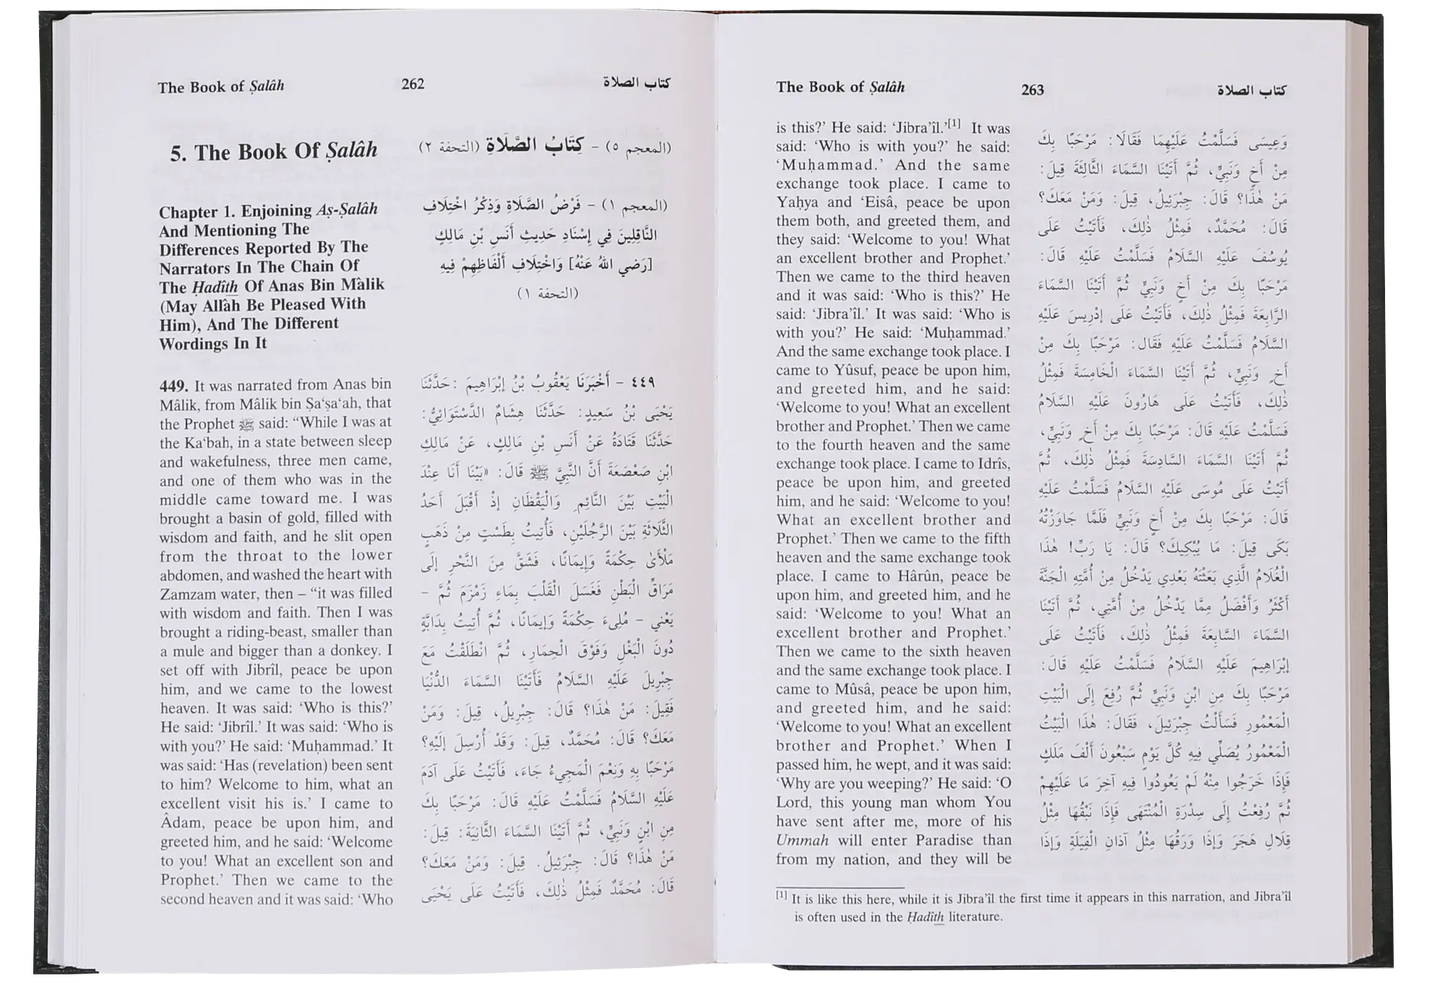 The Book of Ṣalâh 262 كتاب الصلاة
5. The Book Of Ṣalâh
Chapter 1. Enjoining Aṣ-Ṣalâh
And Mentioning The
Differences Reported By The
Narrators In The Chain Of
The Ḥadîth Of Anas Bin Mâlik
(May Allâh Be Pleased With
Him), And The Different
Wordings In It
449. It was narrated from Anas bin
Mâlik, from Mâlik bin Ṣa‘ṣa‘ah, that
the Prophet ﷺ said: “While I was at
the Ka‘bah, in a state between sleep
and wakefulness, three men came,
and one of them who was in the
middle came toward me. I was
brought a basin of gold, filled with
wisdom and faith, and he slit open
from the throat to the lower
abdomen, and washed the heart with
Zamzam water, then – “it was filled
with wisdom and faith. Then I was
brought a riding-beast, smaller than
a mule and bigger than a donkey. I
set off with Jibrîl, peace be upon
him, and we came to the lowest
heaven. It was said: ‘Who is this?’
He said: ‘Jibrîl.’ It was said: ‘Who is
with you?’ He said: ‘Muḥammad.’ It
was said: ‘Has (revelation) been sent
to him? Welcome to him, what an
excellent visit his is.’ I came to
Âdam, peace be upon him, and
greeted him, and he said: ‘Welcome
to you! What an excellent son and
Prophet.’ Then we came to the
second heaven and it was said: ‘Who
(المعجم ٥) – كِتَابُ الصَّلَاةِ (التحفة ٢)
(المعجم ١) – فَرْضُ الصَّلَاةِ وَذِكْرُ اخْتِلَافِ
النَّاقِلِينَ فِي إِسْنَادِ حَدِيثِ أَنَسِ بْنِ مَالِكٍ
[رَضِي اللهُ عَنْهُ] وَاخْتِلَافِ أَلْفَاظِهِمْ فِيهِ
(التحفة ١)
٤٤٩ – أَخْبَرَنَا يَعْقُوبُ بْنُ إِبْرَاهِيمَ: حَدَّثَنَا
يَحْيَى بْنُ سَعِيدٍ: حَدَّثَنَا هِشَامٌ الدَّسْتَوَائِيُّ:
حَدَّثَنَا قَتَادَةُ عَنْ أَنَسِ بْنِ مَالِكٍ، عَنْ مَالِكِ
ابْنِ صَعْصَعَةَ أَنَّ النَّبِيَّ ﷺ قَالَ: «بَيْنَا أَنَا عِنْدَ
الْبَيْتِ بَيْنَ النَّائِمِ وَالْيَقْظَانِ إِذْ أَقْبَلَ أَحَدُ
الثَّلَاثَةِ بَيْنَ الرَّجُلَيْنِ، فَأُتِيتُ بِطَسْتٍ مِنْ ذَهَبٍ
مَلْأَىٰ حِكْمَةً وَإِيمَانًا، فَشَقَّ مِنَ النَّحْرِ إِلَى
مَرَاقِّ الْبَطْنِ فَغَسَلَ الْقَلْبَ بِمَاءِ زَمْزَمَ ثُمَّ –
يَعْنِي – مُلِىءَ حِكْمَةً وَإِيمَانًا، ثُمَّ أُتِيتُ بِدَابَّةٍ
دُونَ الْبَغْلِ وَفَوْقَ الْحِمَارِ، ثُمَّ انْطَلَقْتُ مَعَ
جِبْرِيلَ عَلَيْهِ السَّلَامُ فَأَتَيْنَا السَّمَاءَ الدُّنْيَا
فَقِيلَ: مَنْ هَٰذَا؟ قَالَ: جِبْرِيلُ، قِيلَ: وَمَنْ
مَعَكَ؟ قَالَ: مُحَمَّدٌ، قِيلَ: وَقَدْ أُرْسِلَ إِلَيْهِ؟
مَرْحَبًا بِهِ وَنِعْمَ الْمَجِيءُ جَاءَ، فَأَتَيْتُ عَلَى آدَمَ
عَلَيْهِ السَّلَامُ فَسَلَّمْتُ عَلَيْهِ قَالَ: مَرْحَبًا بِكَ
مِنِ ابْنٍ وَنَبِيٍّ، ثُمَّ أَتَيْنَا السَّمَاءَ الثَّانِيَةَ: قِيلَ:
مَنْ هَٰذَا؟ قَالَ: جِبْرَئِيلُ. قِيلَ: وَمَنْ مَعَكَ؟
قَالَ: مُحَمَّدٌ فَمِثْلُ ذَٰلِكَ، فَأَتَيْتُ عَلَى يَحْيَى
The Book of Ṣalâh 263 كتاب الصلاة
is this?’ He said: ‘Jibra’îl.’[1] It was
said: ‘Who is with you?’ he said:
‘Muḥammad.’ And the same
exchange took place. I came to
Yaḥya and ‘Eisâ, peace be upon
them both, and greeted them, and
they said: ‘Welcome to you! What
an excellent brother and Prophet.’
Then we came to the third heaven
and it was said: ‘Who is this?’ He
said: ‘Jibra’îl.’ It was said: ‘Who is
with you?’ He said: ‘Muḥammad.’
And the same exchange took place. I
came to Yûsuf, peace be upon him,
and greeted him, and he said:
‘Welcome to you! What an excellent
brother and Prophet.’ Then we came
to the fourth heaven and the same
exchange took place. I came to Idrîs,
peace be upon him, and greeted
him, and he said: ‘Welcome to you!
What an excellent brother and
Prophet.’ Then we came to the fifth
heaven and the same exchange took
place. I came to Hârûn, peace be
upon him, and greeted him, and he
said: ‘Welcome to you! What an
excellent brother and Prophet.’
Then we came to the sixth heaven
and the same exchange took place. I
came to Mûsâ, peace be upon him,
and greeted him, and he said:
‘Welcome to you! What an excellent
brother and Prophet.’ When I
passed him, he wept, and it was said:
‘Why are you weeping?’ He said: ‘O
Lord, this young man whom You
have sent after me, more of his
Ummah will enter Paradise than
from my nation, and they will be
وَعِيسَى فَسَلَّمْتُ عَلَيْهِمَا فَقَالَا: مَرْحَبًا بِكَ
مِنْ أَخٍ وَنَبِيٍّ، ثُمَّ أَتَيْنَا السَّمَاءَ الثَّالِثَةَ قِيلَ:
مَنْ هَٰذَا؟ قَالَ: جِبْرَئِيلُ، قِيلَ: وَمَنْ مَعَكَ؟
قَالَ: مُحَمَّدٌ، فَمِثْلُ ذَٰلِكَ، فَأَتَيْتُ عَلَى
يُوسُفَ عَلَيْهِ السَّلَامُ فَسَلَّمْتُ عَلَيْهِ قَالَ:
مَرْحَبًا بِكَ مِنْ أَخٍ وَنَبِيٍّ ثُمَّ أَتَيْنَا السَّمَاءَ
الرَّابِعَةَ فَمِثْلُ ذَٰلِكَ، فَأَتَيْتُ عَلَى إِدْرِيسَ عَلَيْهِ
السَّلَامُ فَسَلَّمْتُ عَلَيْهِ فَقَالَ: مَرْحَبًا بِكَ مِنْ
أَخٍ وَنَبِيٍّ، ثُمَّ أَتَيْنَا السَّمَاءَ الْخَامِسَةَ فَمِثْلُ
ذَٰلِكَ، فَأَتَيْتُ عَلَى هَارُونَ عَلَيْهِ السَّلَامُ
فَسَلَّمْتُ عَلَيْهِ قَالَ: مَرْحَبًا بِكَ مِنْ أَخٍ وَنَبِيٍّ،
ثُمَّ أَتَيْنَا السَّمَاءَ السَّادِسَةَ فَمِثْلُ ذَٰلِكَ، ثُمَّ
أَتَيْتُ عَلَى مُوسَى عَلَيْهِ السَّلَامُ فَسَلَّمْتُ عَلَيْهِ
قَالَ: مَرْحَبًا بِكَ مِنْ أَخٍ وَنَبِيٍّ فَلَمَّا جَاوَزْتُهُ
بَكَى قِيلَ: مَا يُبْكِيكَ؟ قَالَ: يَا رَبِّ! هَٰذَا
الْغُلَامُ الَّذِي بَعَثْتَهُ بَعْدِي يَدْخُلُ مِنْ أُمَّتِهِ الْجَنَّةَ
أَكْثَرُ وَأَفْضَلُ مِمَّا يَدْخُلُ مِنْ أُمَّتِي، ثُمَّ أَتَيْنَا
السَّمَاءَ السَّابِعَةَ فَمِثْلُ ذَٰلِكَ، فَأَتَيْتُ عَلَى
إِبْرَاهِيمَ عَلَيْهِ السَّلَامُ فَسَلَّمْتُ عَلَيْهِ قَالَ:
مَرْحَبًا بِكَ مِنِ ابْنٍ وَنَبِيٍّ ثُمَّ رُفِعَ إِلَى الْبَيْتِ
الْمَعْمُورِ فَسَأَلْتُ جِبْرَئِيلَ، فَقَالَ: هَٰذَا الْبَيْتُ
الْمَعْمُورُ يُصَلِّي فِيهِ كُلَّ يَوْمٍ سَبْعُونَ أَلْفَ مَلَكٍ
فَإِذَا خَرَجُوا مِنْهُ لَمْ يَعُودُوا فِيهِ آخِرَ مَا عَلَيْهِمْ
ثُمَّ رُفِعْتُ إِلَى سِدْرَةِ الْمُنْتَهَى فَإِذَا نَبْقُهَا مِثْلُ
قِلَالِ هَجَرٍ وَإِذَا وَرَقُهَا مِثْلُ آذَانِ الْفِيَلَةِ وَإِذَا
[1] It is like this here, while it is Jibra’îl the first time it appears in this narration, and Jibra’îl
is often used in the Ḥadîth literature.